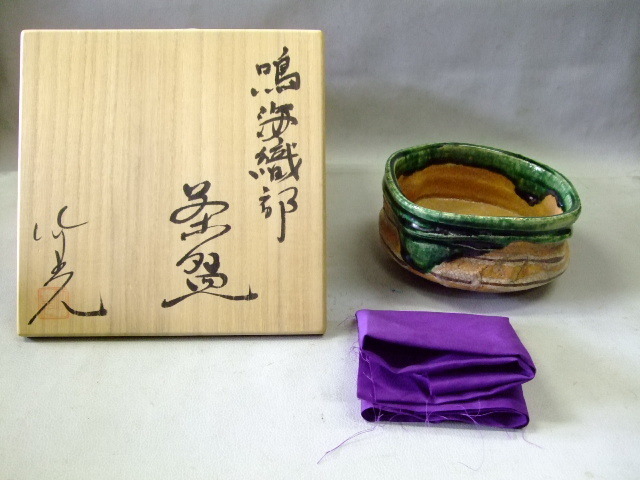 鳴海織部
茶盌